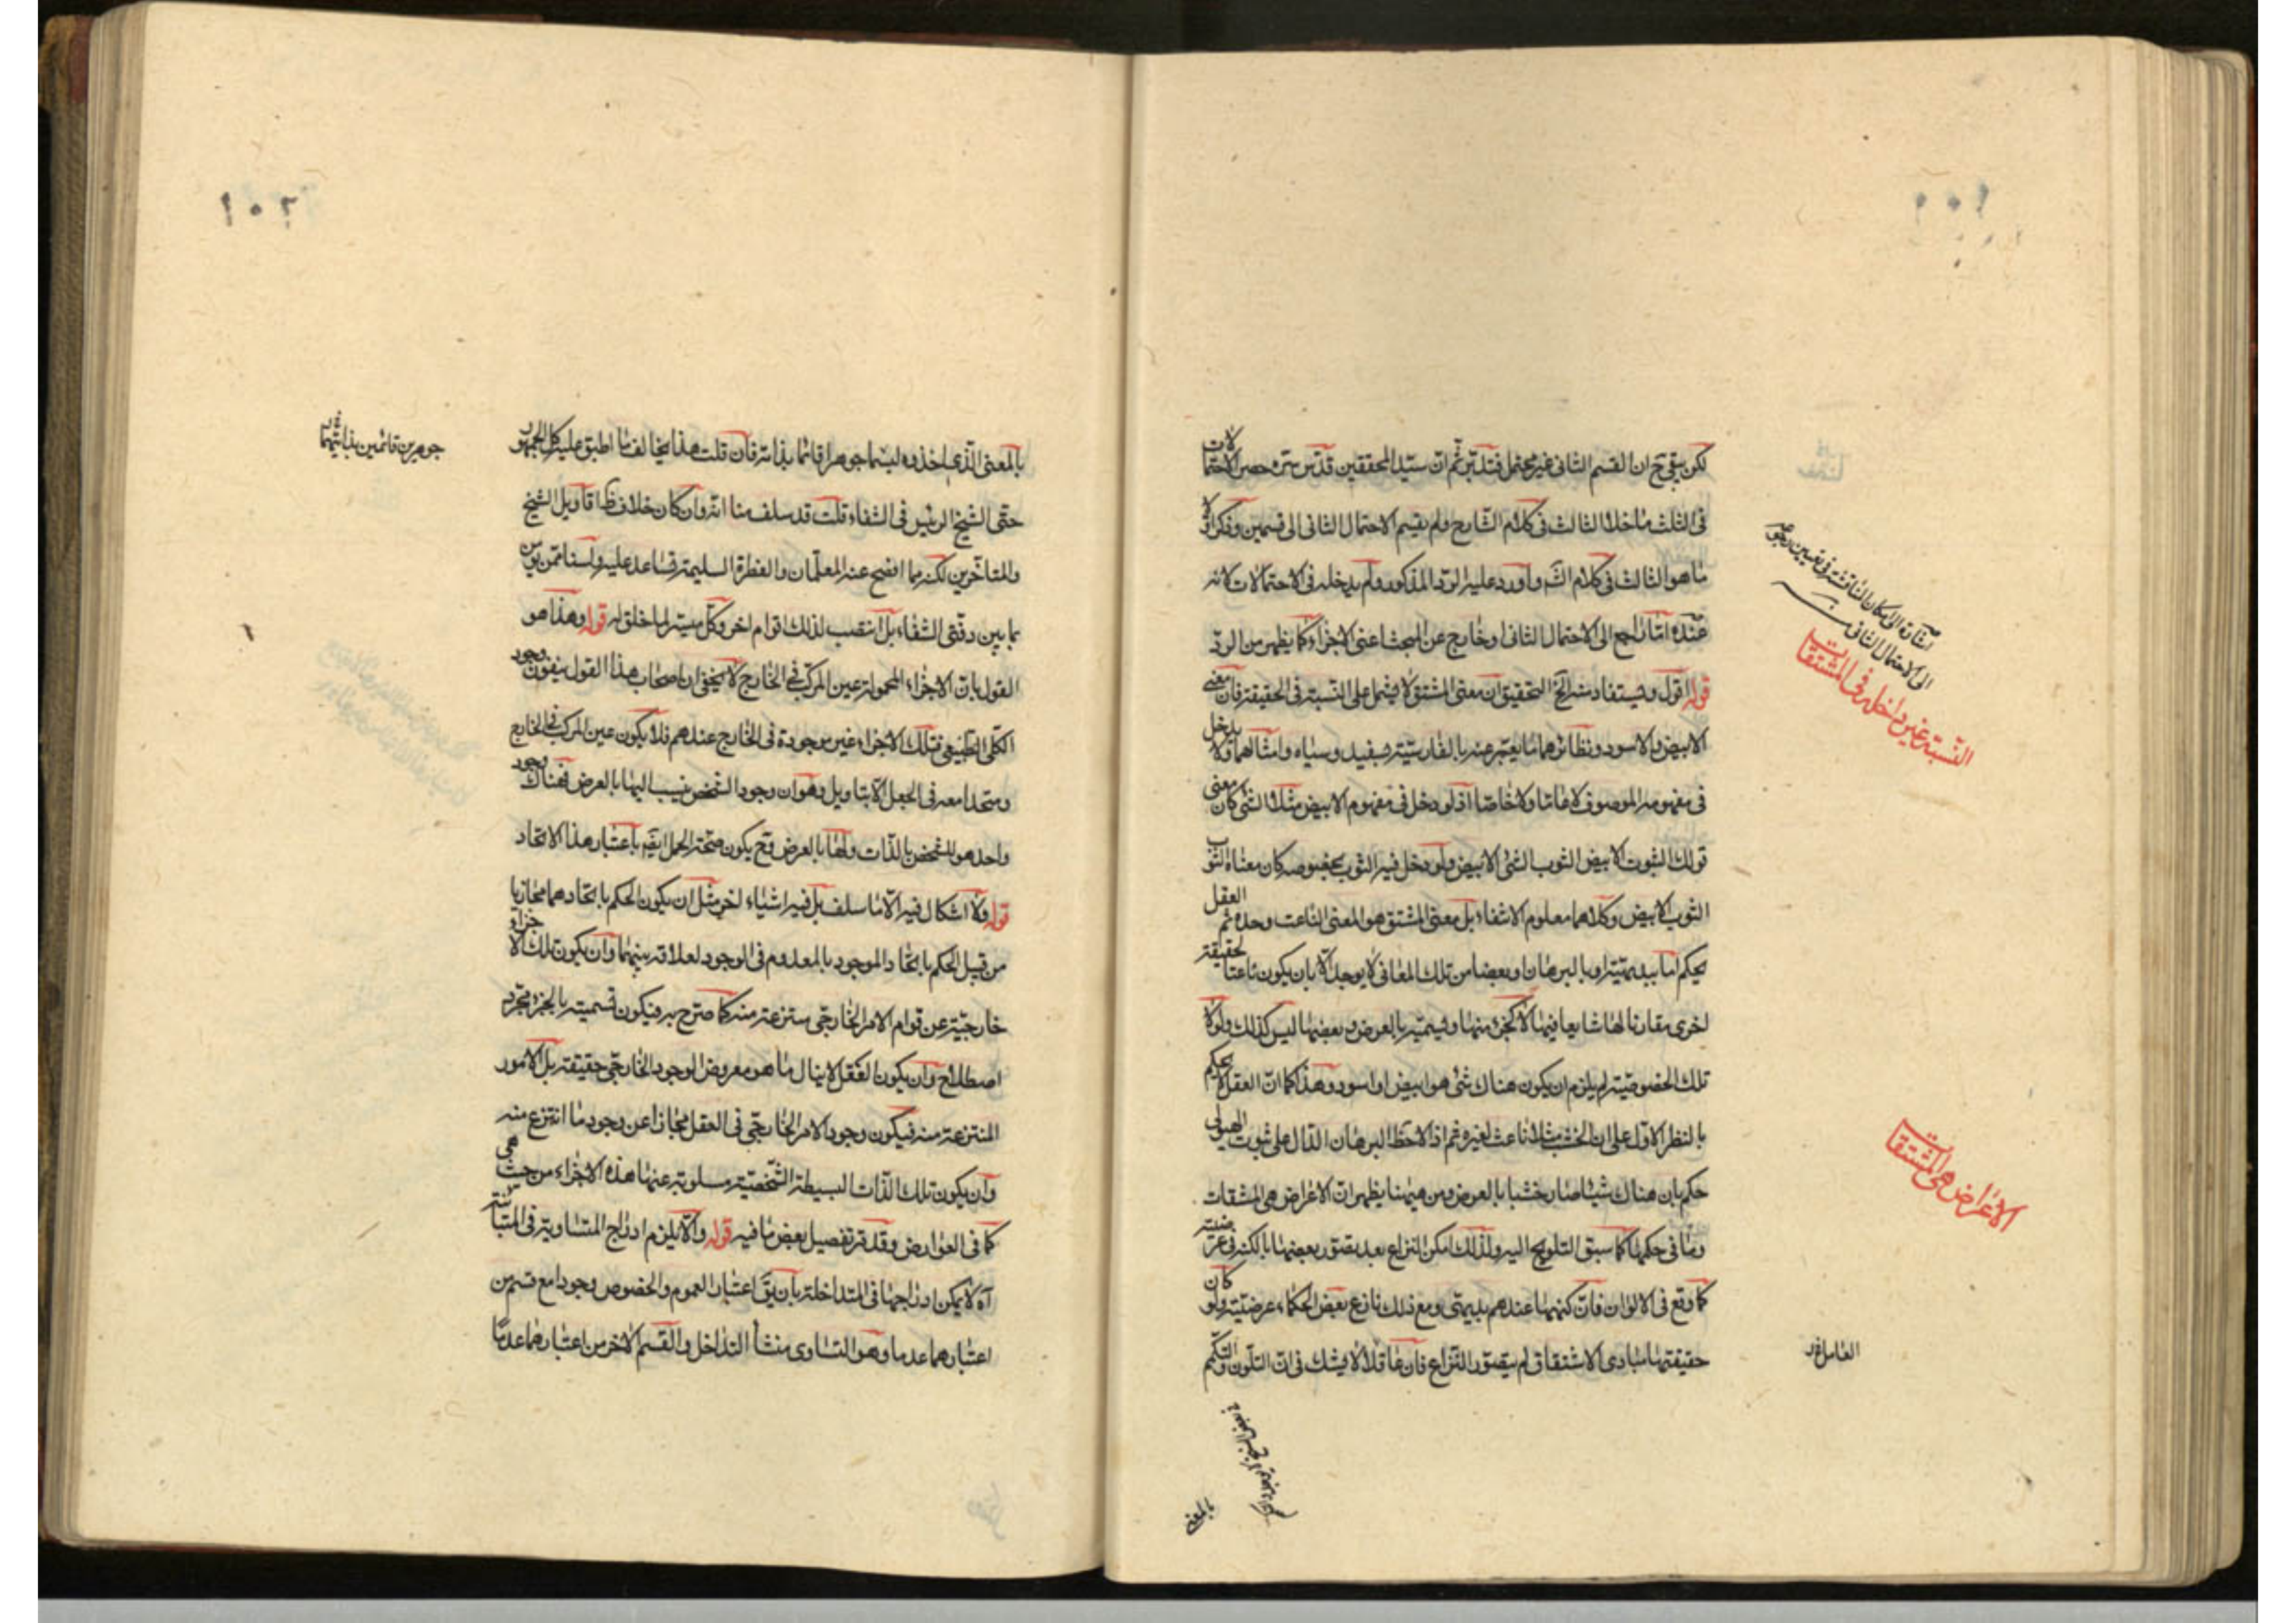 لكن بقي ح ان القسم الثاني غير محتمل فتدبر ثم ان سيد المحققين قدس سره حصر الاحتمالات
في الثلث ما خلا الثالث في كلام الشارح ولم يقسم الاحتمال الثاني الى قسمين وذكر اولا
ما هو الثالث في كلام الش واورد عليه الرد المذكور ولم يدخله في الاحتمالات لانه
عنده اما راجع الى الاحتمال الثاني او خارج عن المبحث اعني الاجزاء كما يظهر من الرد
قوله اقول ويستفاد منه الخ التحقيق ان معنى المشتق لا يشتمل على النسبة في الحقيقة فان معنى
الابيض والاسود ونظائرهما ما يعبر عنه بالفارسية بسفيد وسياه وامثالهما ولا يدخل
في مفهومه الموصوف لا عاما ولا خاصا اذ لو دخل في مفهوم الابيض مثلا الشئ كان معنى
قولك الثوب الابيض الثوب الشئ الابيض ولو دخل فيه الثوب بخصوصه كان معناه الثوب
الثوب الابيض وكلاهما معلوم الانتفاء بل معنى المشتق هو المعنى الناعت وحده ثم العقل
يحكم اما ببديهيته او بالبرهان ان بعضا من تلك المعاني لا يوجد الا بان يكون ناعتا لحقيقة
اخرى مقارنا لها شايعا فيها لا كجزء منها ويسميه بالعرض وبعضها ليس كذلك ولولا
تلك الخصوصية لم يلزم ان يكون هناك شئ هو ابيض او اسود وهذا كما ان العقل لا يحكم
بالنظر الاول على ان الخشب مثلا ناعت لغيره ثم اذا لاحظ البرهان الدال على ثبوت الهيولى
حكم بان هناك شيئا صار خشبا بالعرض ومن هيهنا يظهر ان الاعراض هي المشتقات
وما في حكمها كما سبق التلويح اليه ولذلك امكن النزاع بعد تصور بعضها بالكنه في عرضيته
كما وقع في الالوان فان كنهها عندهم بديهي ومع ذلك نازع بعض الحكماء في عرضيته ولو كان
حقيقتها مبادى الاشتقاق لم يتصور النزاع فان عاقلا لا يشك في ان التلون والتكمم
اشارة الى امكان المناقشة في تعيين رجوعه
الى الاحتمال الثاني
النسبة غير داخلة في المشتقات
الاعراض هي المشتقات
بالمعنى
١٠٢
بالمعنى الذي اخذوه ليسا جوهرا قائما بذاته فان قلت هذا يخالف ما اطبق عليه كل الجمهور
حتى الشيخ الرئيس في الشفاء قلت قد سلف منا انه وان كان خلاف ظ اقاويل الشيخ
والمتاخرين لكنه مما افصح عنه المعلمان والفطرة السليمة تساعد عليه ولسنا ممن يؤمن
بما بين دفتي الشفاء بل انتصب لذلك اقوام اخر وكل ميسر لما خلق له قوله وهذا هو
القول بان الاجزاء المحمولة عين المركب في الخارج لا يخفى ان اصحاب هذا القول ينفون وجود
الكلي الطبيعي فتلك الاجزاء غير موجودة في الخارج عندهم فلا يكون عين المركب في الخارج
ومتحدا معه في الجعل الا بتاويل وهو ان وجود الشخص ينسب اليها بالعرض فهناك وجود
واحد هو للشخص بالذات ولها بالعرض وح يكون صحة الحمل ايضا باعتبار هذا الاتحاد
قوله ولا اشكال فيه الا ما سلف بل فيه اشياء اخر مثل ان يكون الحكم باتحادهما مجازيا
من قبيل الحكم باتحاد الموجود بالمعدوم في الوجود لعلاقة بينهما وان يكون تلك الاجزاء
خارجية عن قوام الامر الخارجي منتزعة منه كما صرح به فيكون تسميته بالجزء مجرد
اصطلاح وان يكون العقل لا ينال ما هو معروض الوجود الخارجي حقيقة بل الامور
المنتزعة منه فيكون وجود الامر الخارجي في العقل مجازا عن وجود ما انتزع منه
وان يكون تلك الذات البسيطة الشخصية مسلوبة عنها هذه الاجزاء من حيث هي
كما في العوارض وقد مر تفصيل بعض ما فيه قوله والا يلزم ادراج المتساوية في المتباينة
آه لا يمكن ادراجها في المتداخلة بان يق اعتبار العموم والخصوص وجودا مع قسم من
اعتبارهما عدما وهو التساوي منشأ التداخل والقسم الاخر من اعتبارهما عدما
جوهرين قائمين بذاتيهما